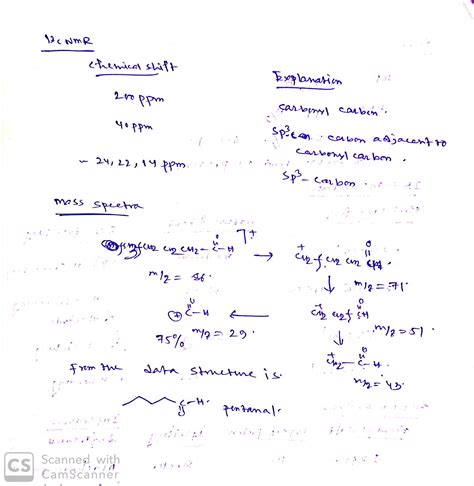 13C NMR
chemical shift
Explanation
200 ppm
carbonyl carbon.
40 ppm
sp3 carbon adjacent to
carbonyl carbon.
~ 24, 22, 14 ppm
sp3- carbon
mass spectra
CH2 CH2 - C - H
O
+
→
m/z = 86.
m/z = 71.
↓
+ C - H
O
←
m/z = 29.
75%
m/z = 51
↓
+
CH2 - C - H
O
m/z = 43.
From the data structure is.
H.
O
pentanal.
CS Scanned with
CamScanner